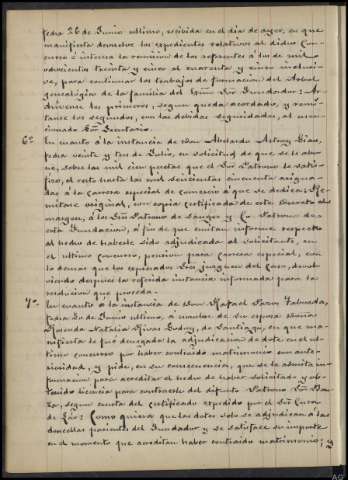 fecha 26 de Junio último, recibida en el dia de ayer, en que
manifiesta devuelve los expedientes relativos al dicho Con-
curso é interesa la remisión de los referentes á los de mil
ochocientos treinta y cinco al cuarenta y cinco inclusi-
ve, para continuar los trabajos de formación del Arbol
genealógico de la familia del Señor Fundador: Ar-
chívense los primeros, segun queda acordado, y remí-
tanse los segundos, con las debidas seguridades, al men-
cionado Señor Secretario.
6º En cuanto á la instancia de Don Abelardo
fecha veinte y tres de Julio, en solicitud de que se le abo-
ne, sobre las mil cien pesetas que el Sor Patrono le satis-
fizo, el resto hasta las mil seiscientas cincuenta asigna-
das á la carrera especial de comercio á que se dedica: Re-
mítase original, con copia certificada de este Decreto al
margen, á los Sres Patrono de Sangre y Co-Patrono de
esta Fundación, á fin de que emitan informe respecto
al hecho de haberle sido adjudicada al solicitante, en
el último concurso, pensión para carrera especial, con
lo demas que los expresados Sres juzguen del caso, devol-
viendo despues la referida instancia informada para la
resolución que proceda.
7º En cuanto á la instancia de Don Rafael Pazos Taboada,
fecha 30 de Junio último, á nombre de su esposa Doña
Rosenda Natalia Rivas Godoy, de Santiago, en que ma-
nifiesta le fue denegada la adjudicación de dote en el úl-
timo concurso por haber contraido matrimonio con ante-
rioridad, y pide, en su consecuencia, que se le admita in-
formación para acreditar el hecho de haber solicitado y ob-
tenido licencia para contraerlo del difunto Patrono Sor
segun consta del certificado expedido por el Sor Cura
de Como quiera que las dotes solo se adjudican á las
doncellas parientes del Fundador y se satisface su importe
en el momento que acreditan haber contraido matrimonio; y